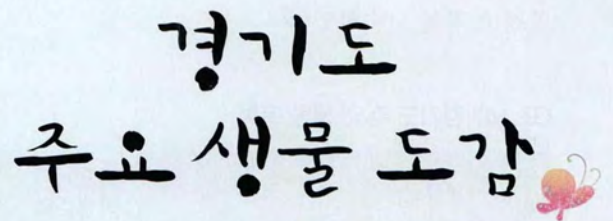 경기도
주요 생물 도감